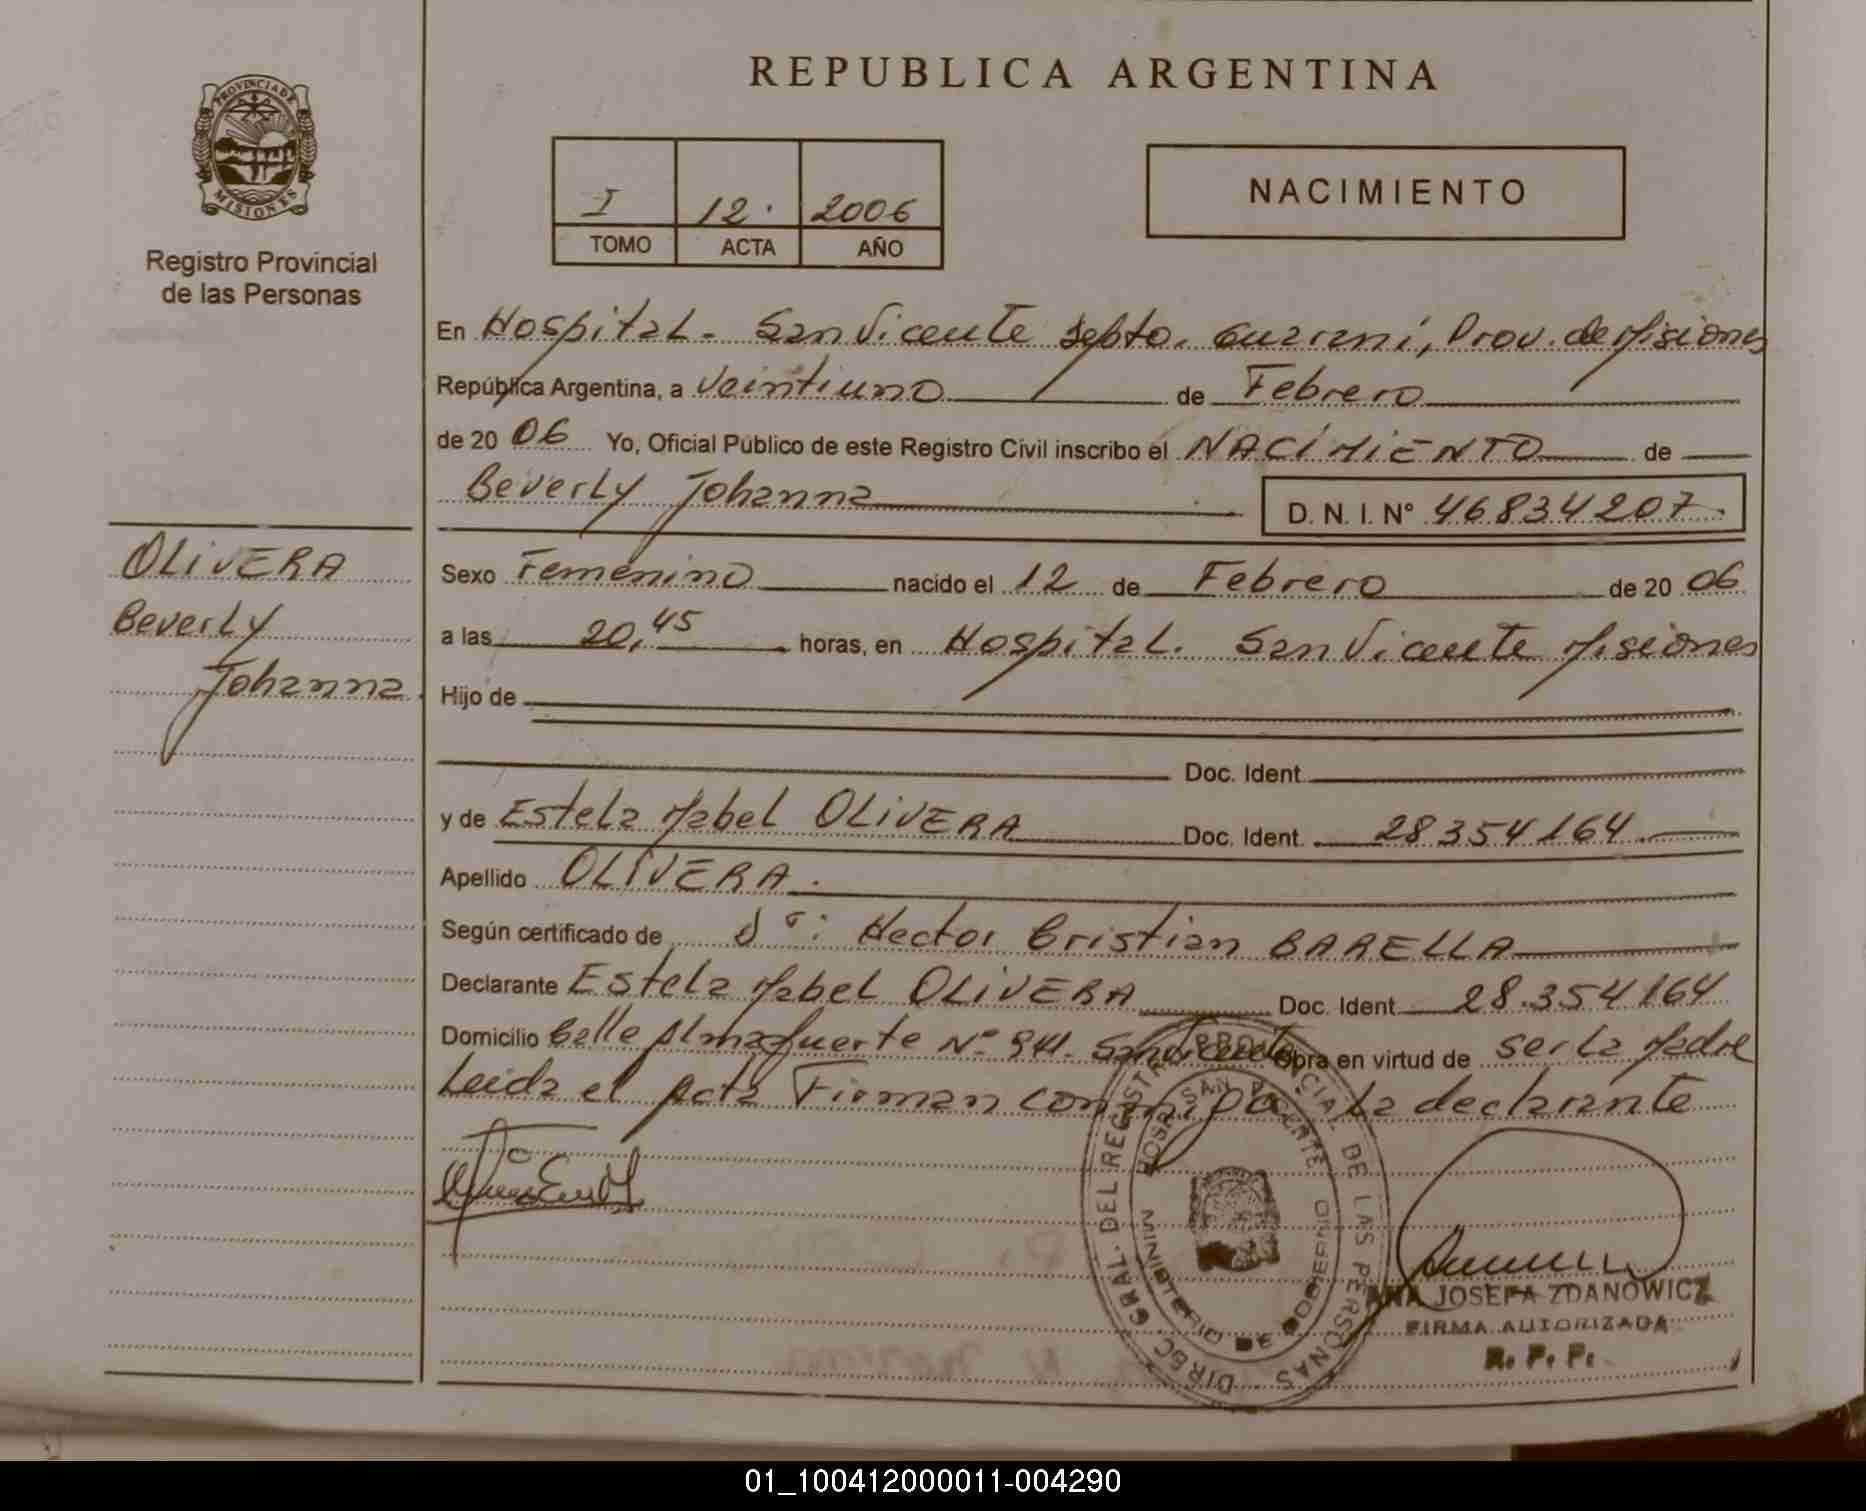 REPUBLICA ARGENTINA
PROVINCIA DE MISIONES
Registro Provincial
de las Personas
I 12. 2006
TOMO ACTA AÑO
NACIMIENTO
En Hospital - San Vicente Depto. Guarani, Prov. de Misiones
República Argentina, a Veintiuno de Febrero
de 20 06 Yo, Oficial Público de este Registro Civil inscribo el NACIMIENTO de
Beverly Johanna D. N. I. N° 46834207
OLIVERA
Beverly
Johanna
Sexo Femenino nacido el 12 de Febrero de 20 06
a las 20,45 horas, en Hospital. San Vicente Misiones
Hijo de
Doc. Ident
y de Estela Mabel OLIVERA Doc. Ident 28354164
Apellido OLIVERA.
Según certificado de Dr: Hector Cristian BARELLA
Declarante Estela Mabel OLIVERA Doc. Ident 28.354164
Domicilio Calle Almafuerte N° San Vicente Obra en virtud de ser la Madre
Leida el Acta Firman conmigo la declarante
DIREC. GRAL. DEL REGISTRO PROVINCIAL DE LAS PERSONAS
HOSP. SAN VICENTE
MINISTERIO DE GOBIERNO
ANA JOSEFA ZDANOWICZ
FIRMA AUTORIZADA
R. P. P.
01_100412000011-004290